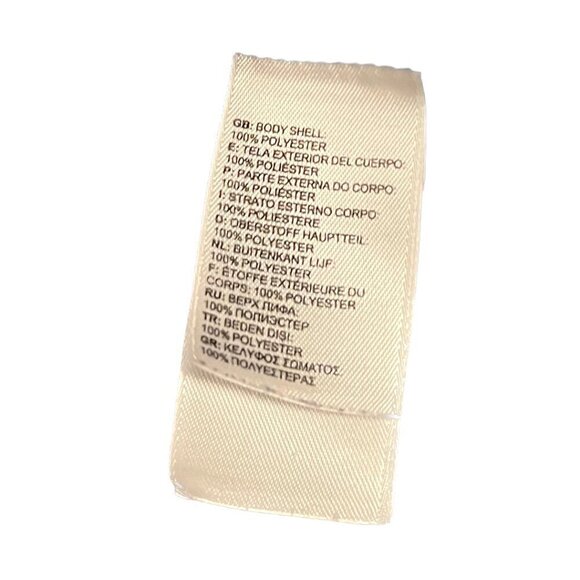 GB: BODY SHELL:
100% POLYESTER
E: TELA EXTERIOR DEL CUERPO:
100% POLIÉSTER
P: PARTE EXTERNA DO CORPO:
100% POLIÉSTER
I: STRATO ESTERNO CORPO:
100% POLIESTERE
D: OBERSTOFF HAUPTTEIL:
100% POLYESTER
NL: BUITENKANT LIJF:
100% POLYESTER
F: ÉTOFFE EXTÉRIEURE DU
CORPS: 100% POLYESTER
RU: ВЕРХ ЛИФА:
100% ПОЛИЭСТЕР
TR: BEDEN DIŞI:
100% POLYESTER
GR: ΚΕΛΥΦΟΣ ΣΩΜΑΤΟΣ:
100% ΠΟΛΥΕΣΤΕΡΑΣ